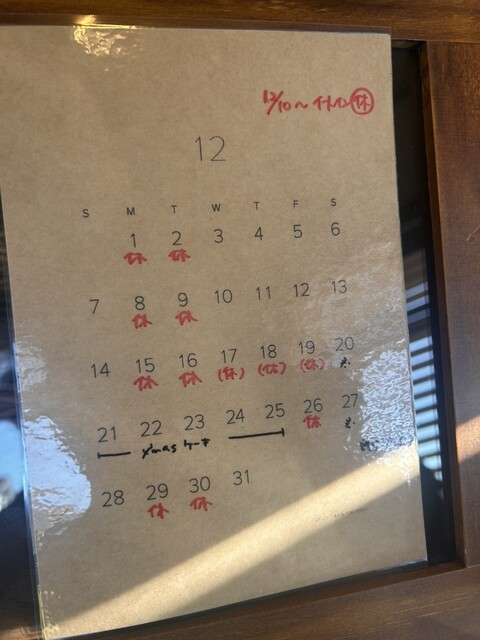 12/10〜イートイン休
12
S M T W T F S
1 2 3 4 5 6
休 休
7 8 9 10 11 12 13
休 休
14 15 16 17 18 19 20
休 休 (休) (休) (休)
21 22 23 24 25 26 27
xmas ケーキ 休
28 29 30 31
休 休